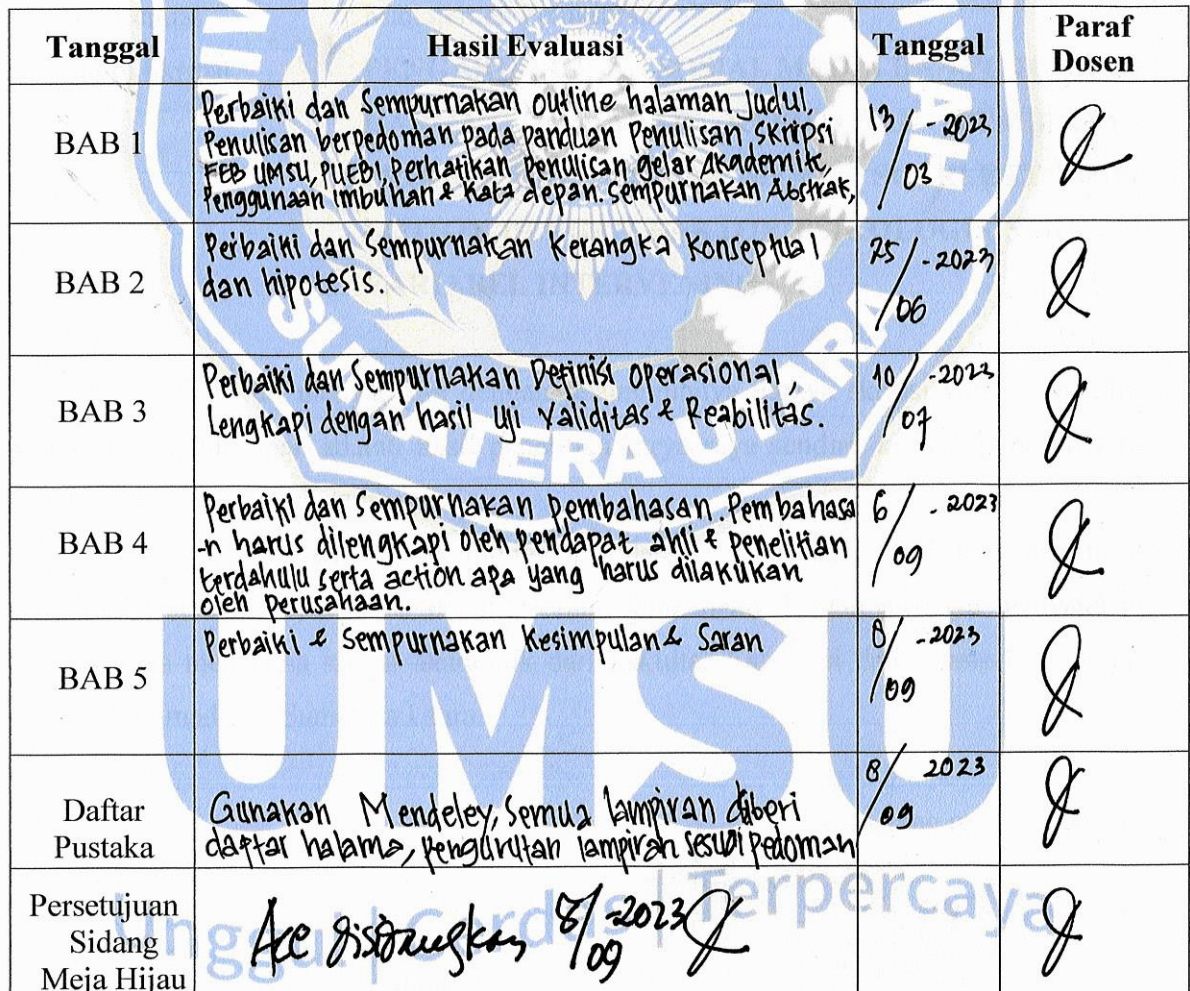 Tanggal Hasil Evaluasi Tanggal Paraf
Dosen
BAB 1
Perbaiki dan Sempurnakan outline halaman judul,
Penulisan berpedoman pada panduan Penulisan skripsi
FEB UMSU, PUEBI, Perhatikan Penulisan gelar Akademik,
Penggunaan imbuhan & kata depan. Sempurnakan Abstrak,
13/03 - 2023
BAB 2
Perbaiki dan Sempurnakan Kerangka Konseptual
dan hipotesis.
25/06 - 2023
BAB 3
Perbaiki dan Sempurnakan Definisi operasional,
Lengkapi dengan hasil uji Validitas & Reabilitas.
10/07 - 2023
BAB 4
Perbaiki dan Sempurnakan Pembahasan. Pembahasa
-n harus dilengkapi oleh pendapat ahli & penelitian
terdahulu serta action apa yang harus dilakukan
oleh perusahaan.
6/09 - 2023
BAB 5
Perbaiki & Sempurnakan Kesimpulan & Saran
8/09 - 2023
Daftar
Pustaka
Gunakan Mendeley, Semua lampiran diberi
daftar halama, pengurutan lampiran sesuai pedoman
8/09 2023
Persetujuan
Sidang
Meja Hijau
Acc disidangkan 8/09 - 2023
SUMATERA UTARA
UMSU
Unggul | Cerdas | Terpercaya